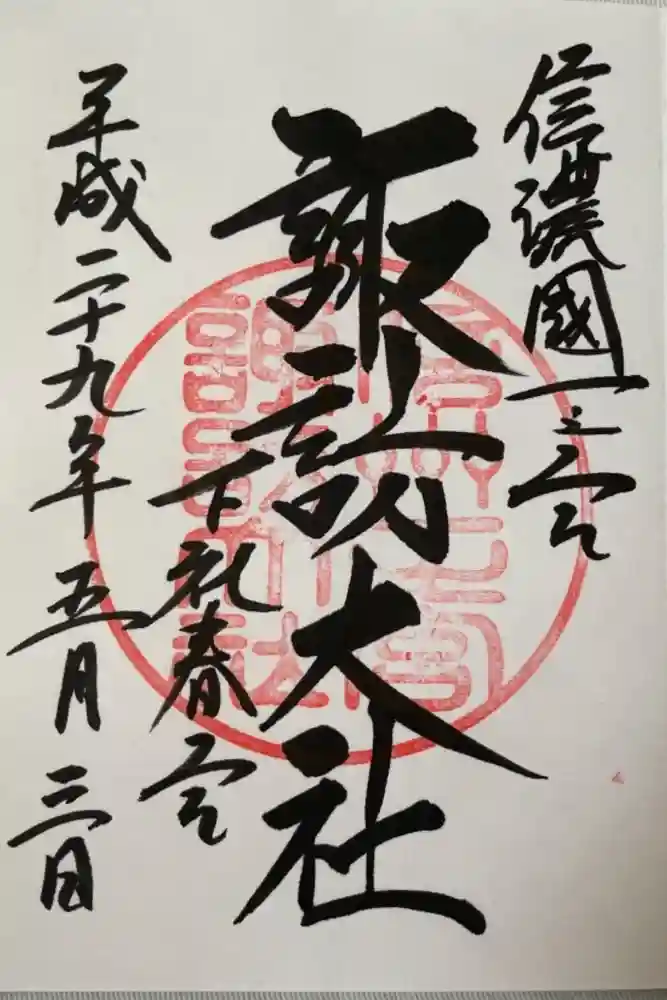 信濃國一之宮
諏訪大社
下社春宮
平成二十九年五月三日